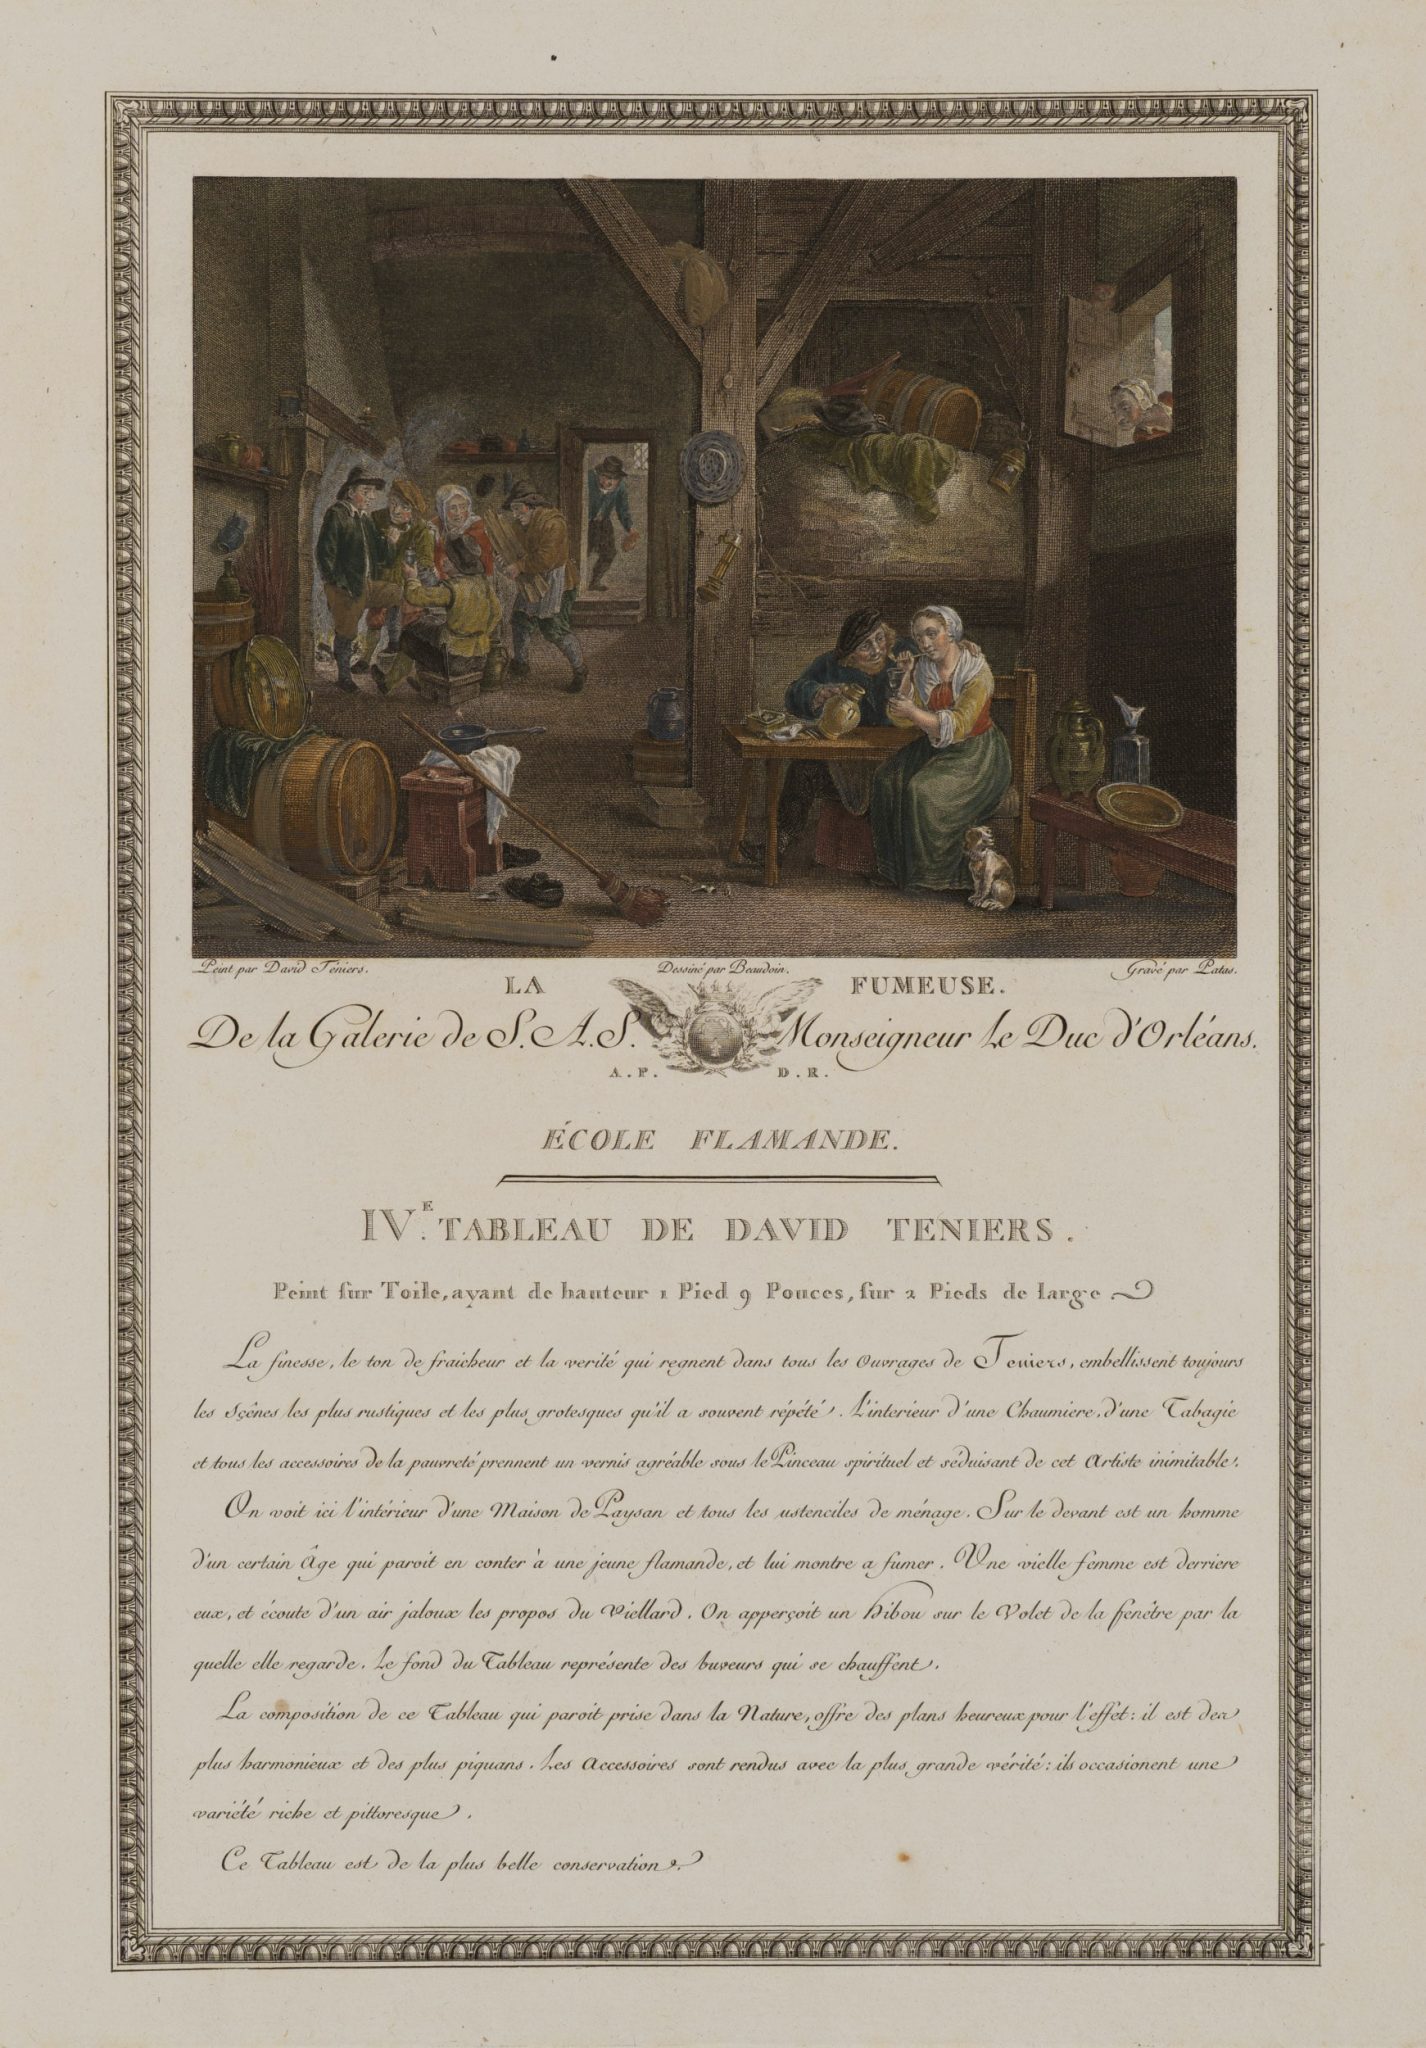 Peint par David Téniers. Dessiné par Beaudoin. Gravé par Patas.
LA FUMEUSE.
De la Galerie de S. A. S. Monseigneur Le Duc d'Orléans.
A. P. D. R.
ÉCOLE FLAMANDE.
IV.E TABLEAU DE DAVID TENIERS.
Peint sur Toile, ayant de hauteur 1 Pied 9 Pouces, sur 2 Pieds de large.
La finesse, le ton de fraicheur et la verité qui regnent dans tous les Ouvrages de Teniers, embellissent toujours
les Sçênes les plus rustiques et les plus grotesques qu'il a souvent répété. L'interieur d'une Chaumiere, d'une Tabagie
et tous les accessoires de la pauvreté prennent un vernis agréable sous le Pinceau spirituel et séduisant de cet Artiste inimitable.
On voit ici l'intérieur d'une Maison de Paysan et tous les ustenciles de ménage. Sur le devant est un homme
d'un certain Âge qui paroit en conter à une jeune flamande, et lui montre a fumer. Une vielle femme est derriere
eux, et écoute d'un air jaloux les propos du Viellard. On apperçoit un Hibou sur le Volet de la fenêtre par la
quelle elle regarde. Le fond du Tableau représente des buveurs qui se chauffent.
La composition de ce Tableau qui paroit prise dans la Nature, offre des plans heureux pour l'effet: il est des
plus harmonieux et des plus piquans. Les Accessoires sont rendus avec la plus grande vérité: ils occasionent une
variété riche et pittoresque.
Ce Tableau est de la plus belle conservation.